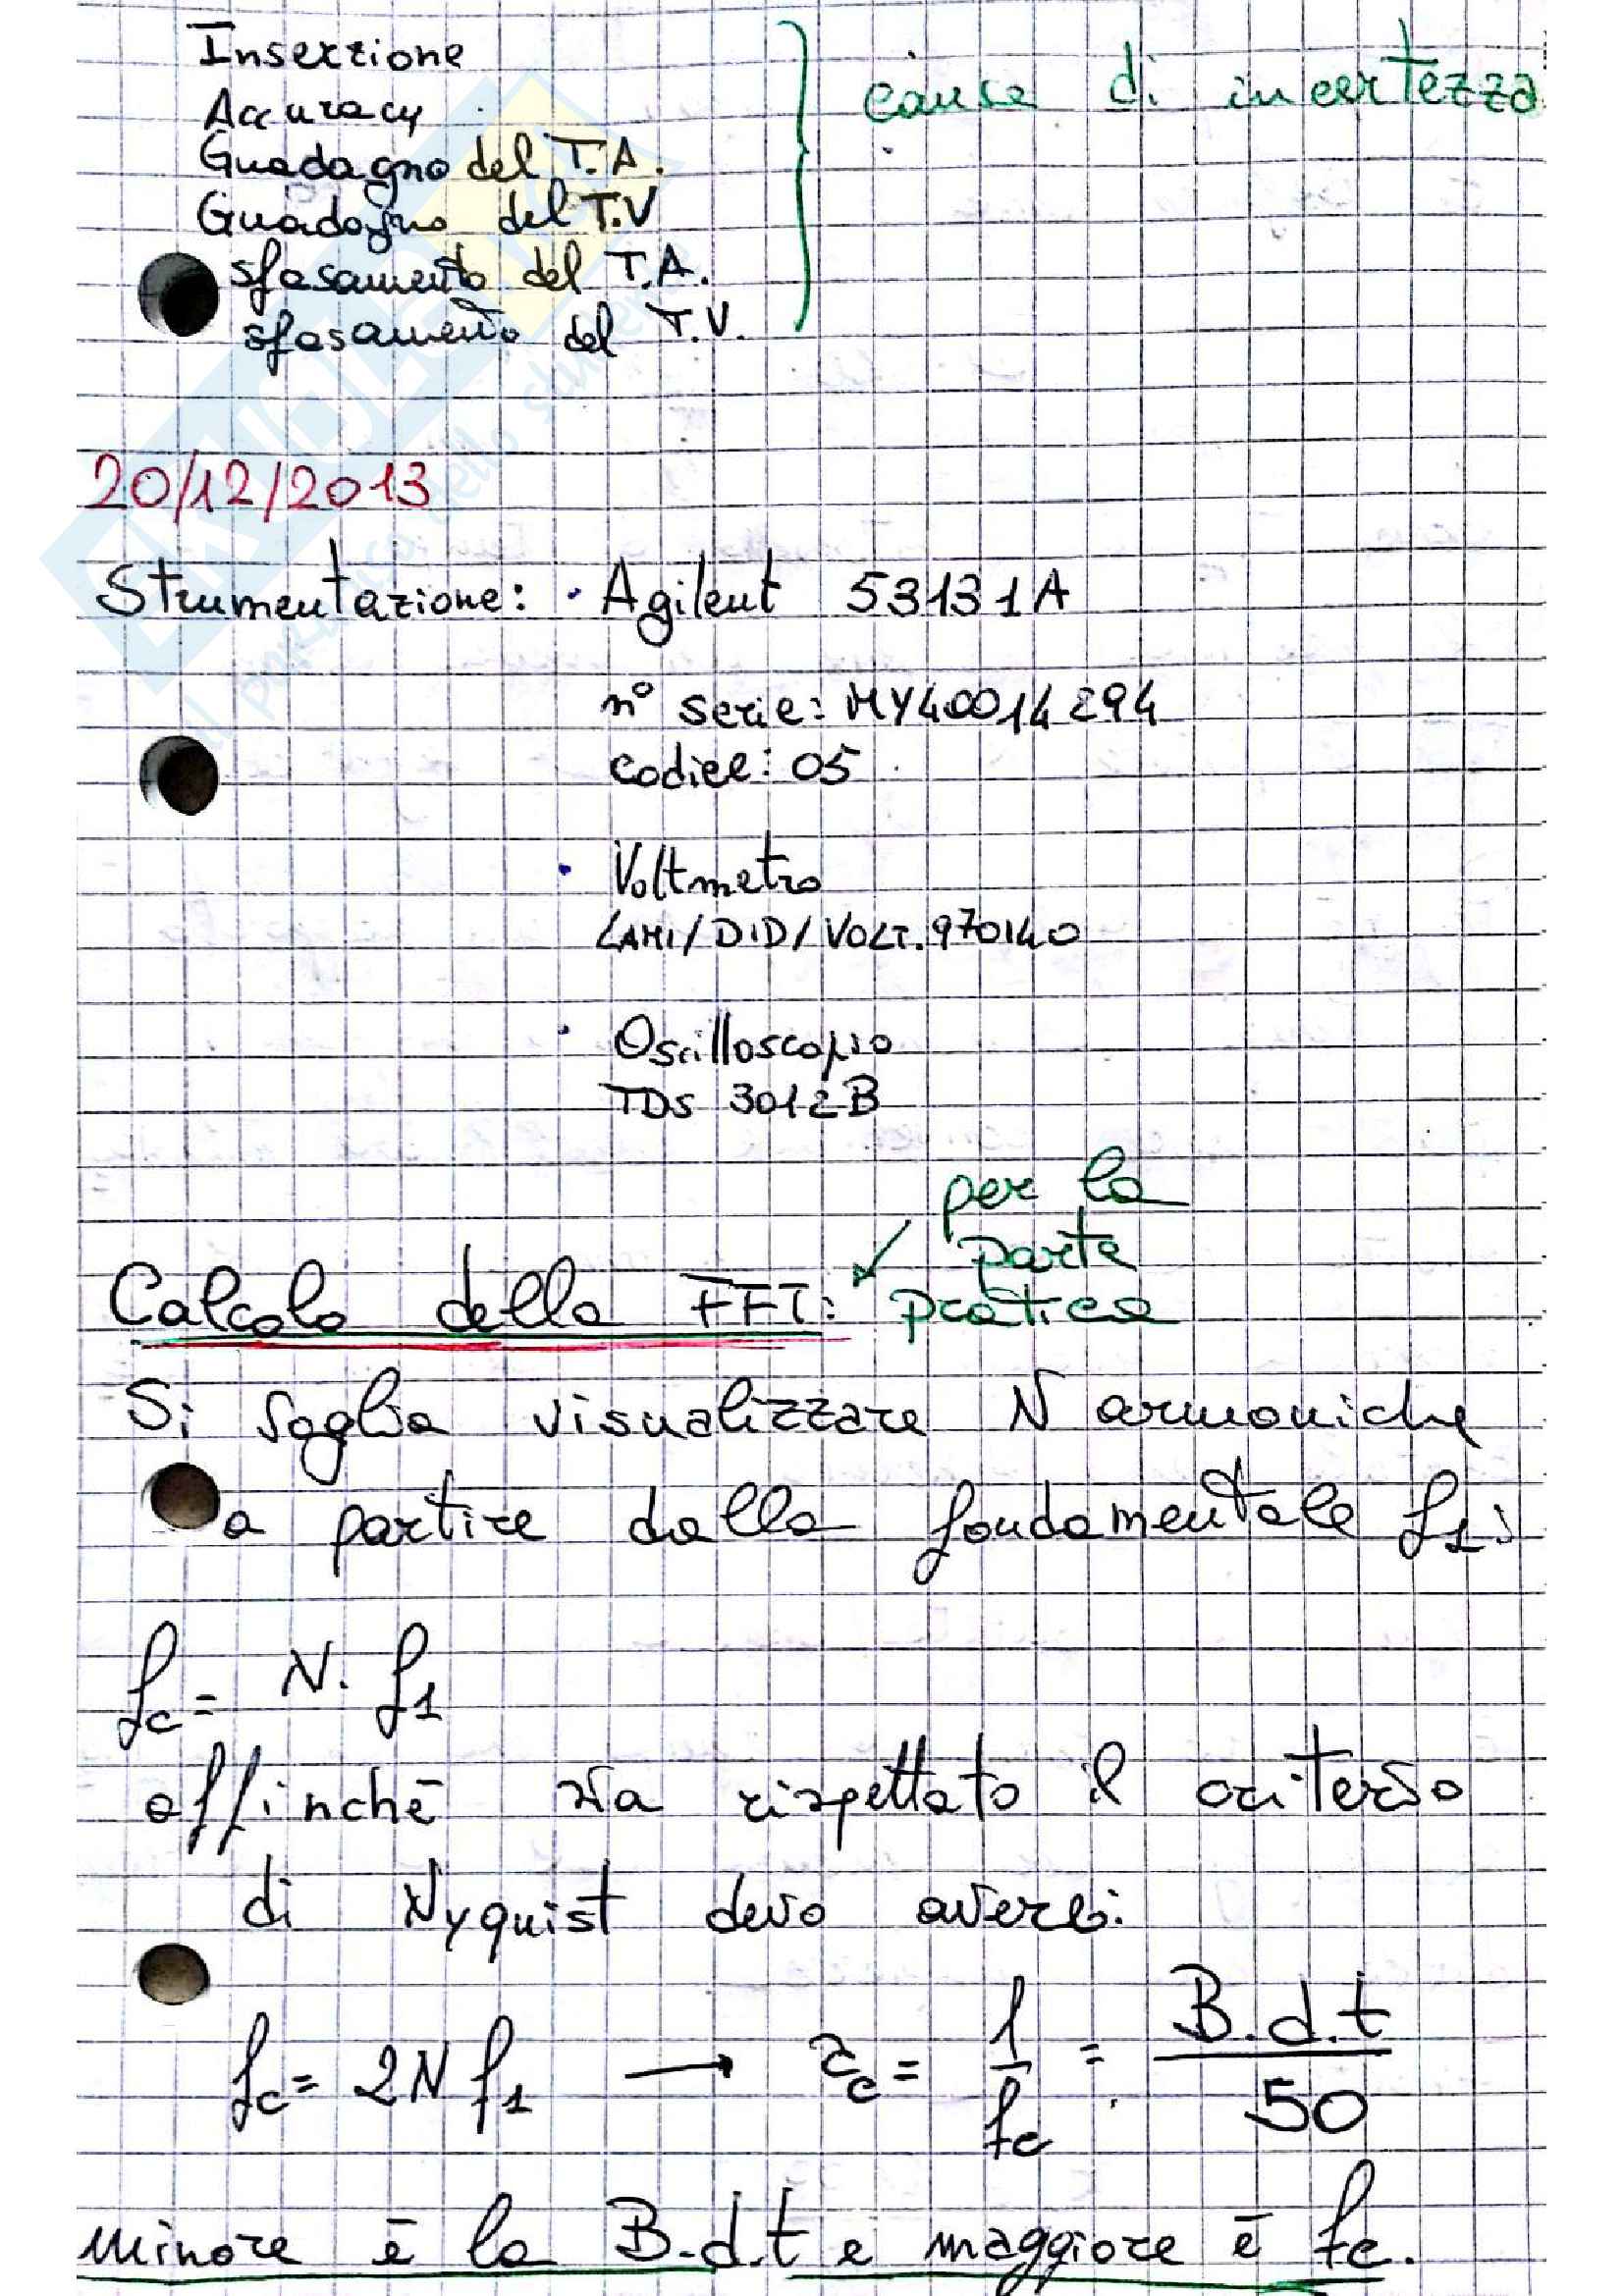 Inserzione
Accuracy
Guadagno del T.A.
Guadagno del T.V
sfasamento del T.A.
sfasamento del T.V.
cause di incertezza
20/12/2013
Strumentazione: · Agilent 53131A
n° serie: MY40014294
codice: 05
· Voltmetro
LAMI/DID/VOLT.970140
· Oscilloscopio
TDS 3012B
per la
parte
pratica
Calcolo della FFT:
Si voglia visualizzare N armoniche
a partire dalla fondamentale f1:
fc = N · f1
affinchè sia rispettato il criterio
di Nyquist devo averei:
fc = 2N f1 → τc = 1/fc = B.d.t/50
minore è la B.d.t e maggiore è fc.